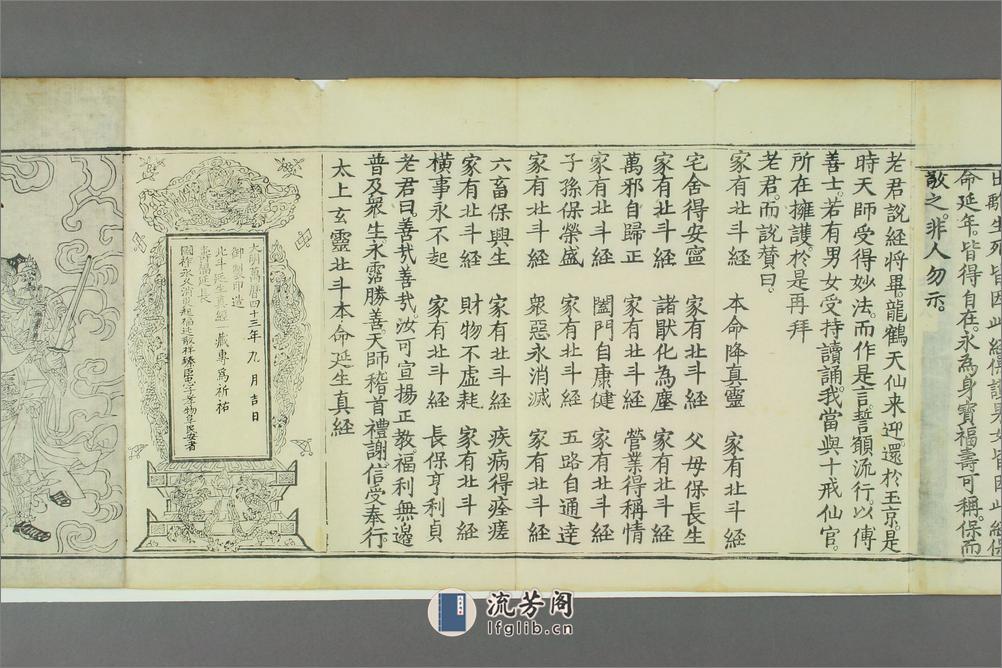 命延年。皆得自在。永為身寶福壽可稱。保而
敬之。非人勿示。
老君說經將畢。龍鶴天仙来迎。還於玉京。是
時天師受得妙法。而作是言。誓願流行。以傳
善士。若有男女受持讀誦。我當與十戒仙官。
所在擁護。於是再拜
老君。而說贊曰。
家有北斗經 本命降真靈 家有北斗經
宅舍得安寧 家有北斗經 父母保長生
家有北斗經 諸猒化為塵 家有北斗經
萬邪自歸正 家有北斗經 營業得稱情
家有北斗經 闔門自康健 家有北斗經
子孫保榮盛 家有北斗經 五路自通達
家有北斗經 衆惡永消滅 家有北斗經
六畜保興生 家有北斗經 疾病得痊瘥
家有北斗經 財物不虚耗 家有北斗經
横事永不起 家有北斗經 長保亨利貞
老君曰。善㢤善㢤。汝可宣揚正教。福利無邊
普及衆生。永霑勝善。天師稽首禮謝。信受奉行
太上玄靈北斗本命延生真經
大明萬曆四十三年九月吉日
御製印造
北斗延生真經一藏專為祈祐
流芳阁
lfglib.cn